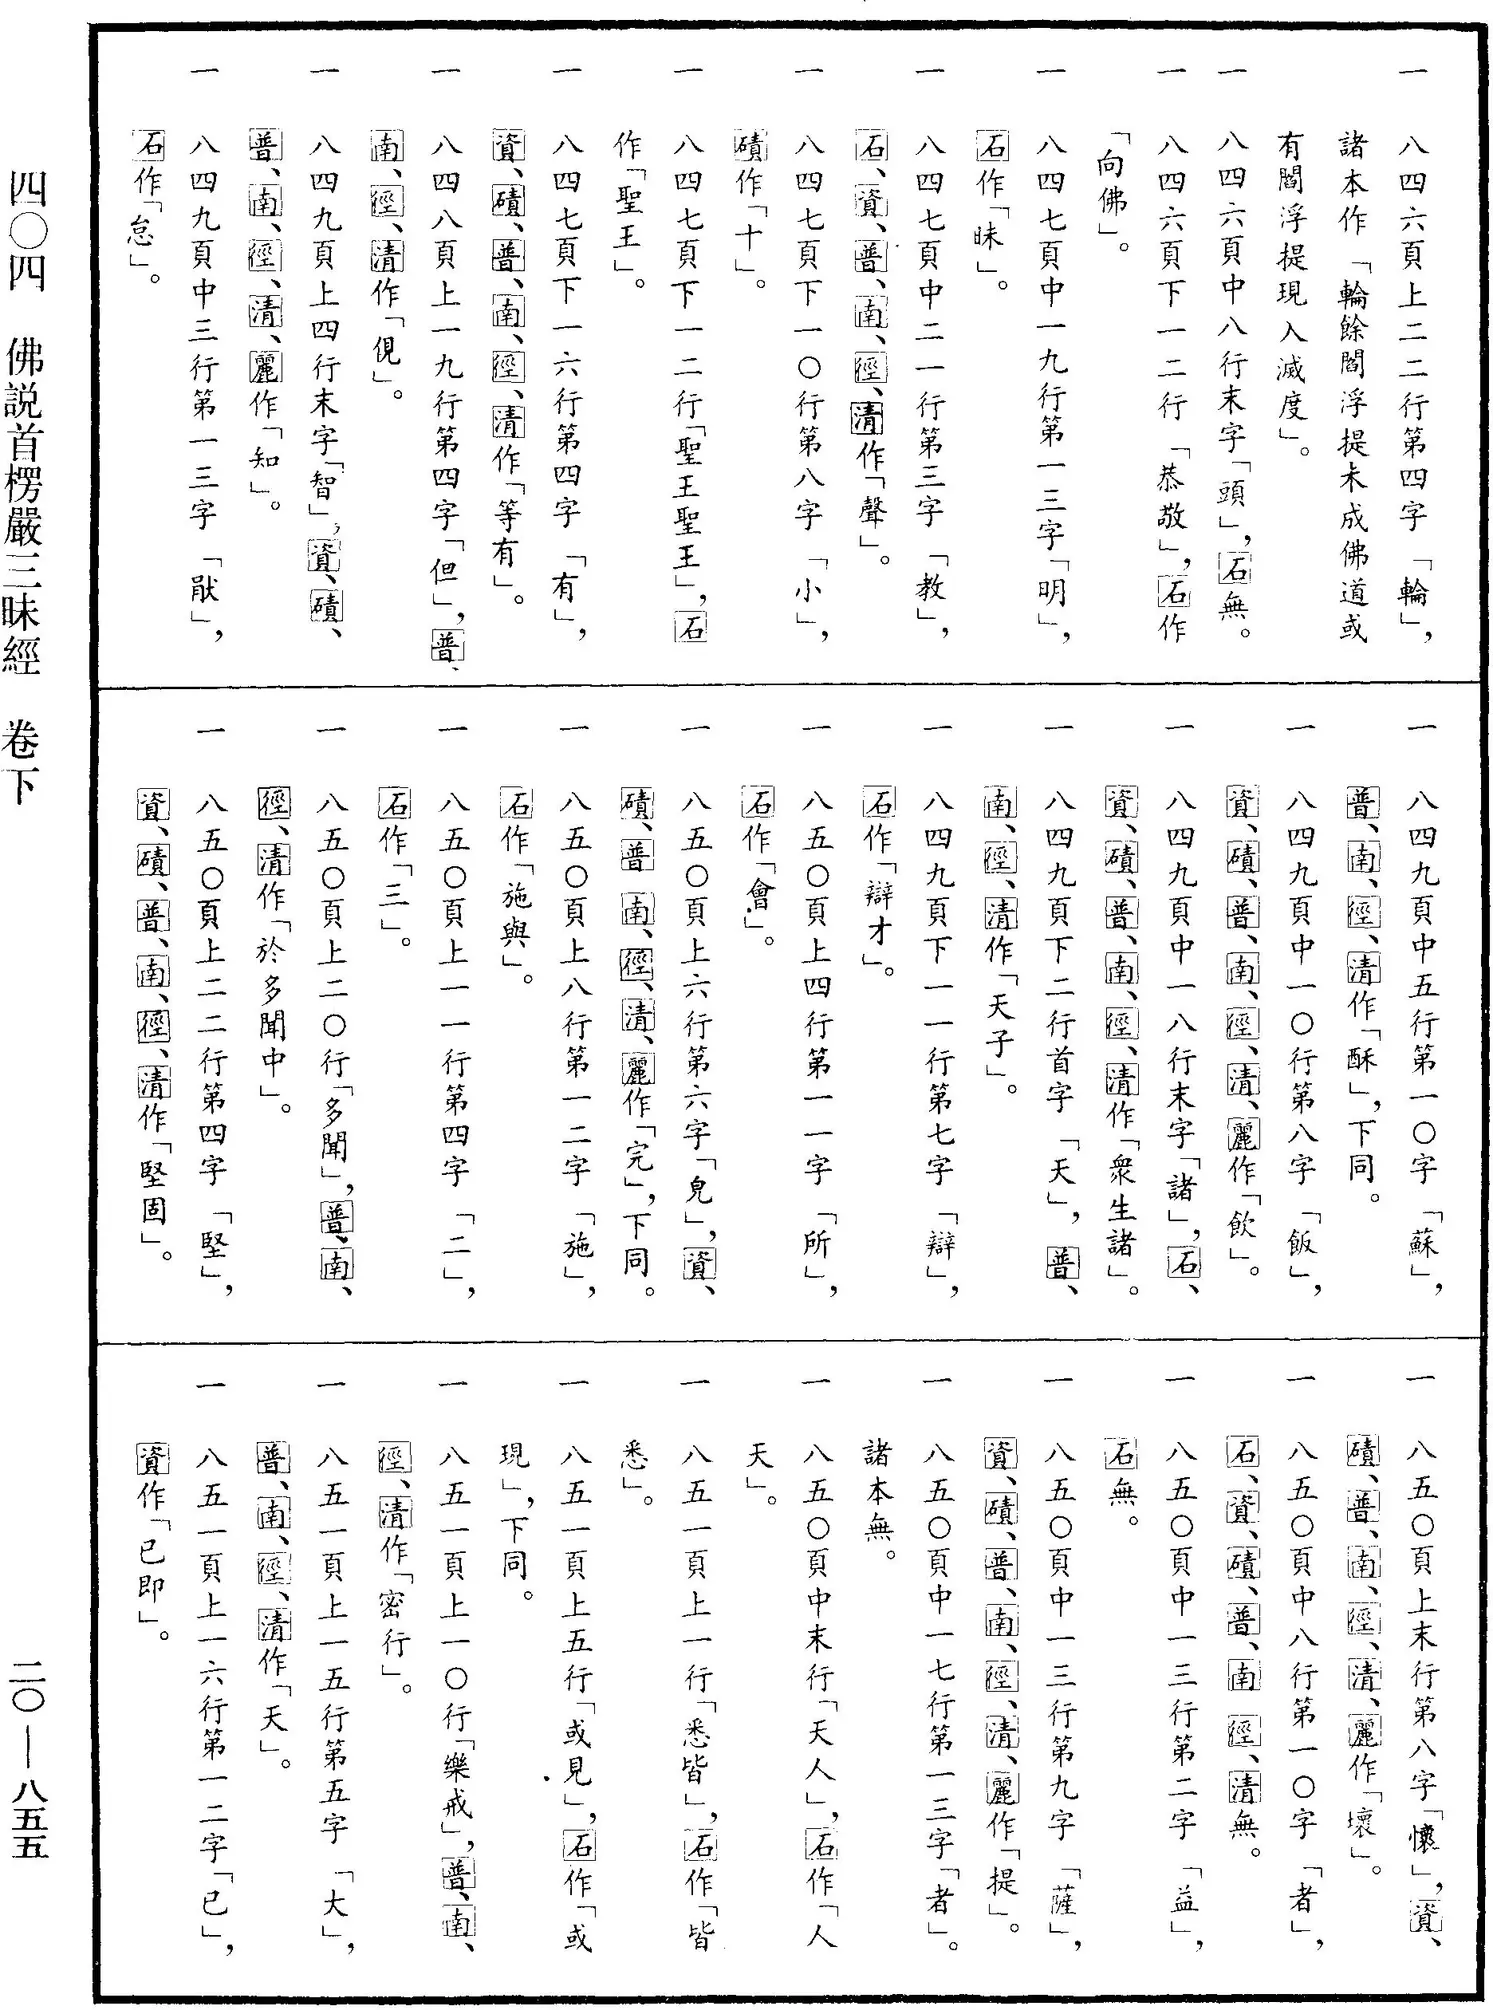 一　八四六頁上二二行第四字「輪」，
諸本作「輪餘閻浮提未成佛道或
有閻浮提現入滅度」。
一　八四六頁中八行末字「頭」，石無。
一　八四六頁下一二行「恭敬」，石作
「向佛」。
一　八四七頁中一九行第一三字「明」，
石作「昧」。
一　八四七頁中二一行第三字「教」，
石、資、普、南、徑、清作「聲」。
一　八四七頁下一〇行第八字「小」，
磧作「十」。
一　八四七頁下一二行「聖王聖王」，石
作「聖王」。
一　八四七頁下一六行第四字「有」，
資、磧、普、南、徑、清作「等有」。
一　八四八頁上一九行第四字「但」，普、
南、徑、清作「俔」。
一　八四九頁上四行末字「智」，資、磧、
普、南、徑、清、麗作「知」。
一　八四九頁中三行第一三字「猒」，
石作「怠」。
一　八四九頁中五行第一〇字「蘇」，
普、南、徑、清作「酥」，下同。
一　八四九頁中一〇行第八字「飯」，
資、磧、普、南、徑、清、麗作「飲」。
一　八四九頁中一八行末字「諸」，石、
資、磧、普、南、徑、清作「衆生諸」。
一　八四九頁下二行首字「天」，普、
南、徑、清作「天子」。
一　八四九頁下一一行第七字「辯」，
石作「辯才」。
一　八五〇頁上四行第一一字「所」，
石作「會」。
一　八五〇頁上六行第六字「皃」，資、
磧、普 南、徑、清、麗作「完」，下同。
一　八五〇頁上八行第一二字「施」，
石作「施與」。
一　八五〇頁上一一行第四字「二」，
石作「三」。
一　八五〇頁上二〇行「多聞」，普、南、
徑、清作「於多聞中」。
一　八五〇頁上二二行第四字「堅」，
資、磧、普、南、徑、清作「堅固」。
一　八五〇頁上末行第八字「懷」，資、
磧、普、南、徑、清、麗作「壞」。
一　八五〇頁中八行第一〇字「者」，
石、資、磧、普、南 徑、清無。
一　八五〇頁中一三行第二字「益」，
石無。
一　八五〇頁中一三行第九字「薩」，
資、磧、普、南、徑、清、麗作「提」。
一　八五〇頁中一七行第一三字「者」。
諸本無。
一　八五〇頁中末行「天人」，石作「人
天」。
一　八五一頁上一行「悉皆」，石作「皆
悉」。
一　八五一頁上五行「或見」，石作「或
現」，下同。
一　八五一頁上一〇行「樂戒」，普、南、
徑、清作「密行」。
一　八五一頁上一五行第五字「大」，
普、南、徑、清作「天」。
一　八五一頁上一六行第一二字「已」，
資作「已即」。
四〇四　佛説首楞嚴三昧經　卷下
二〇—八五五